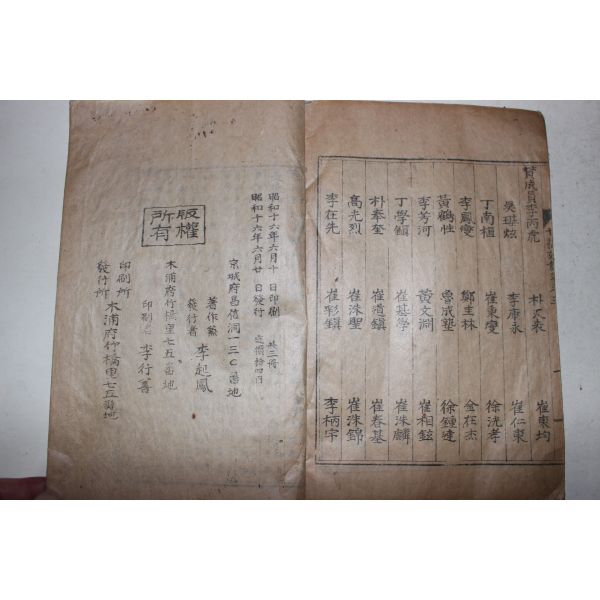 贊成員
吳琪炫
丁南植
李鳳燮
黃鶴性
李芳河
丁學鎭
朴奉奎
高光烈
李在先
李康永
崔東燮
鄭圭林
魯成塾
黃文淵
崔基學
崔道鎭
崔洙聖
崔彩鎭
崔東均
崔仁東
徐洸孝
金在杰
徐鍾達
崔相鉉
崔洙麟
崔春基
崔洙錦
李柄宇
昭和十六年六月十日印刷 共三冊
昭和十六年六月廿日發行 定價拾四円
京城府昌信洞一三〇番地
著作兼
發行者 李起鳳
木浦府竹橋里七五番地
印刷者 李行善
印刷所
發行所 木浦府竹橋里七五番地
版權
所有